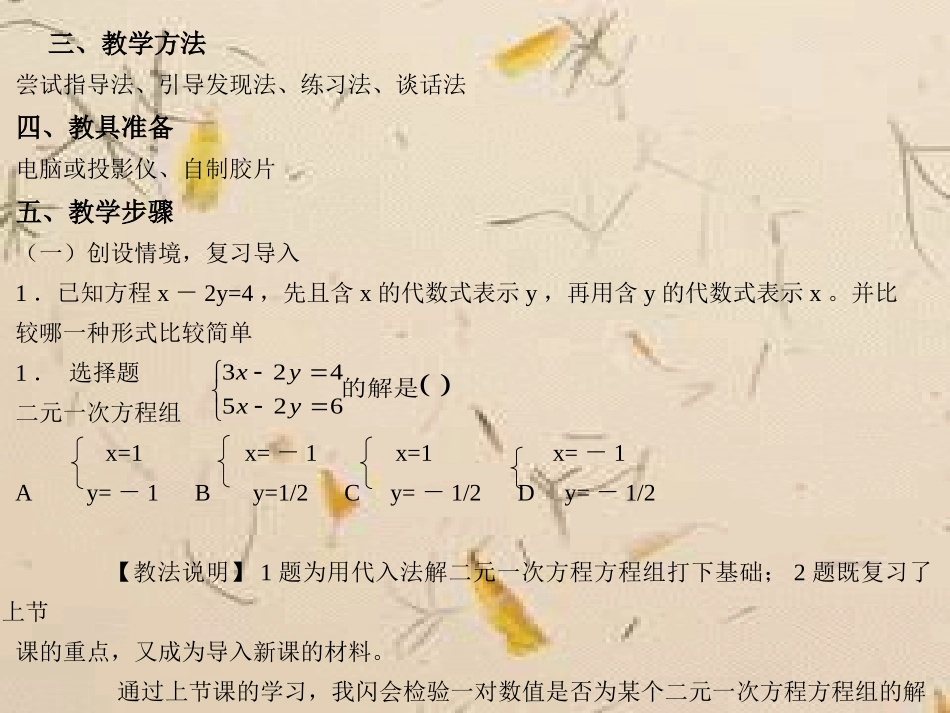 三、教学方法
尝试指导法、引导发现法、练习法、谈话法
四、教具准备
电脑或投影仪、自制胶片
五、教学步骤
（一）创设情境，复习导入
1．已知方程 x － 2y=4，先且含 x 的代数式表示 y，再用含 y 的代数式表示 x。并比
较哪一种形式比较简单
1． 选择题
二元一次方程组 { 3x - 2y = 4, 5x - 2y = 6 的解是( )
{ x=1 { x= － 1 { x=1 { x= － 1
A y= － 1 B y=1/2 C y= － 1/2 D y= － 1/2
【教法说明】 1 题为用代入法解二元一次方程方程组打下基础； 2 题既复习了
上节
课的重点，又成为导入新课的材料。
通过上节课的学习，我闪会检验一对数值是否为某个二元一次方程方程组的解